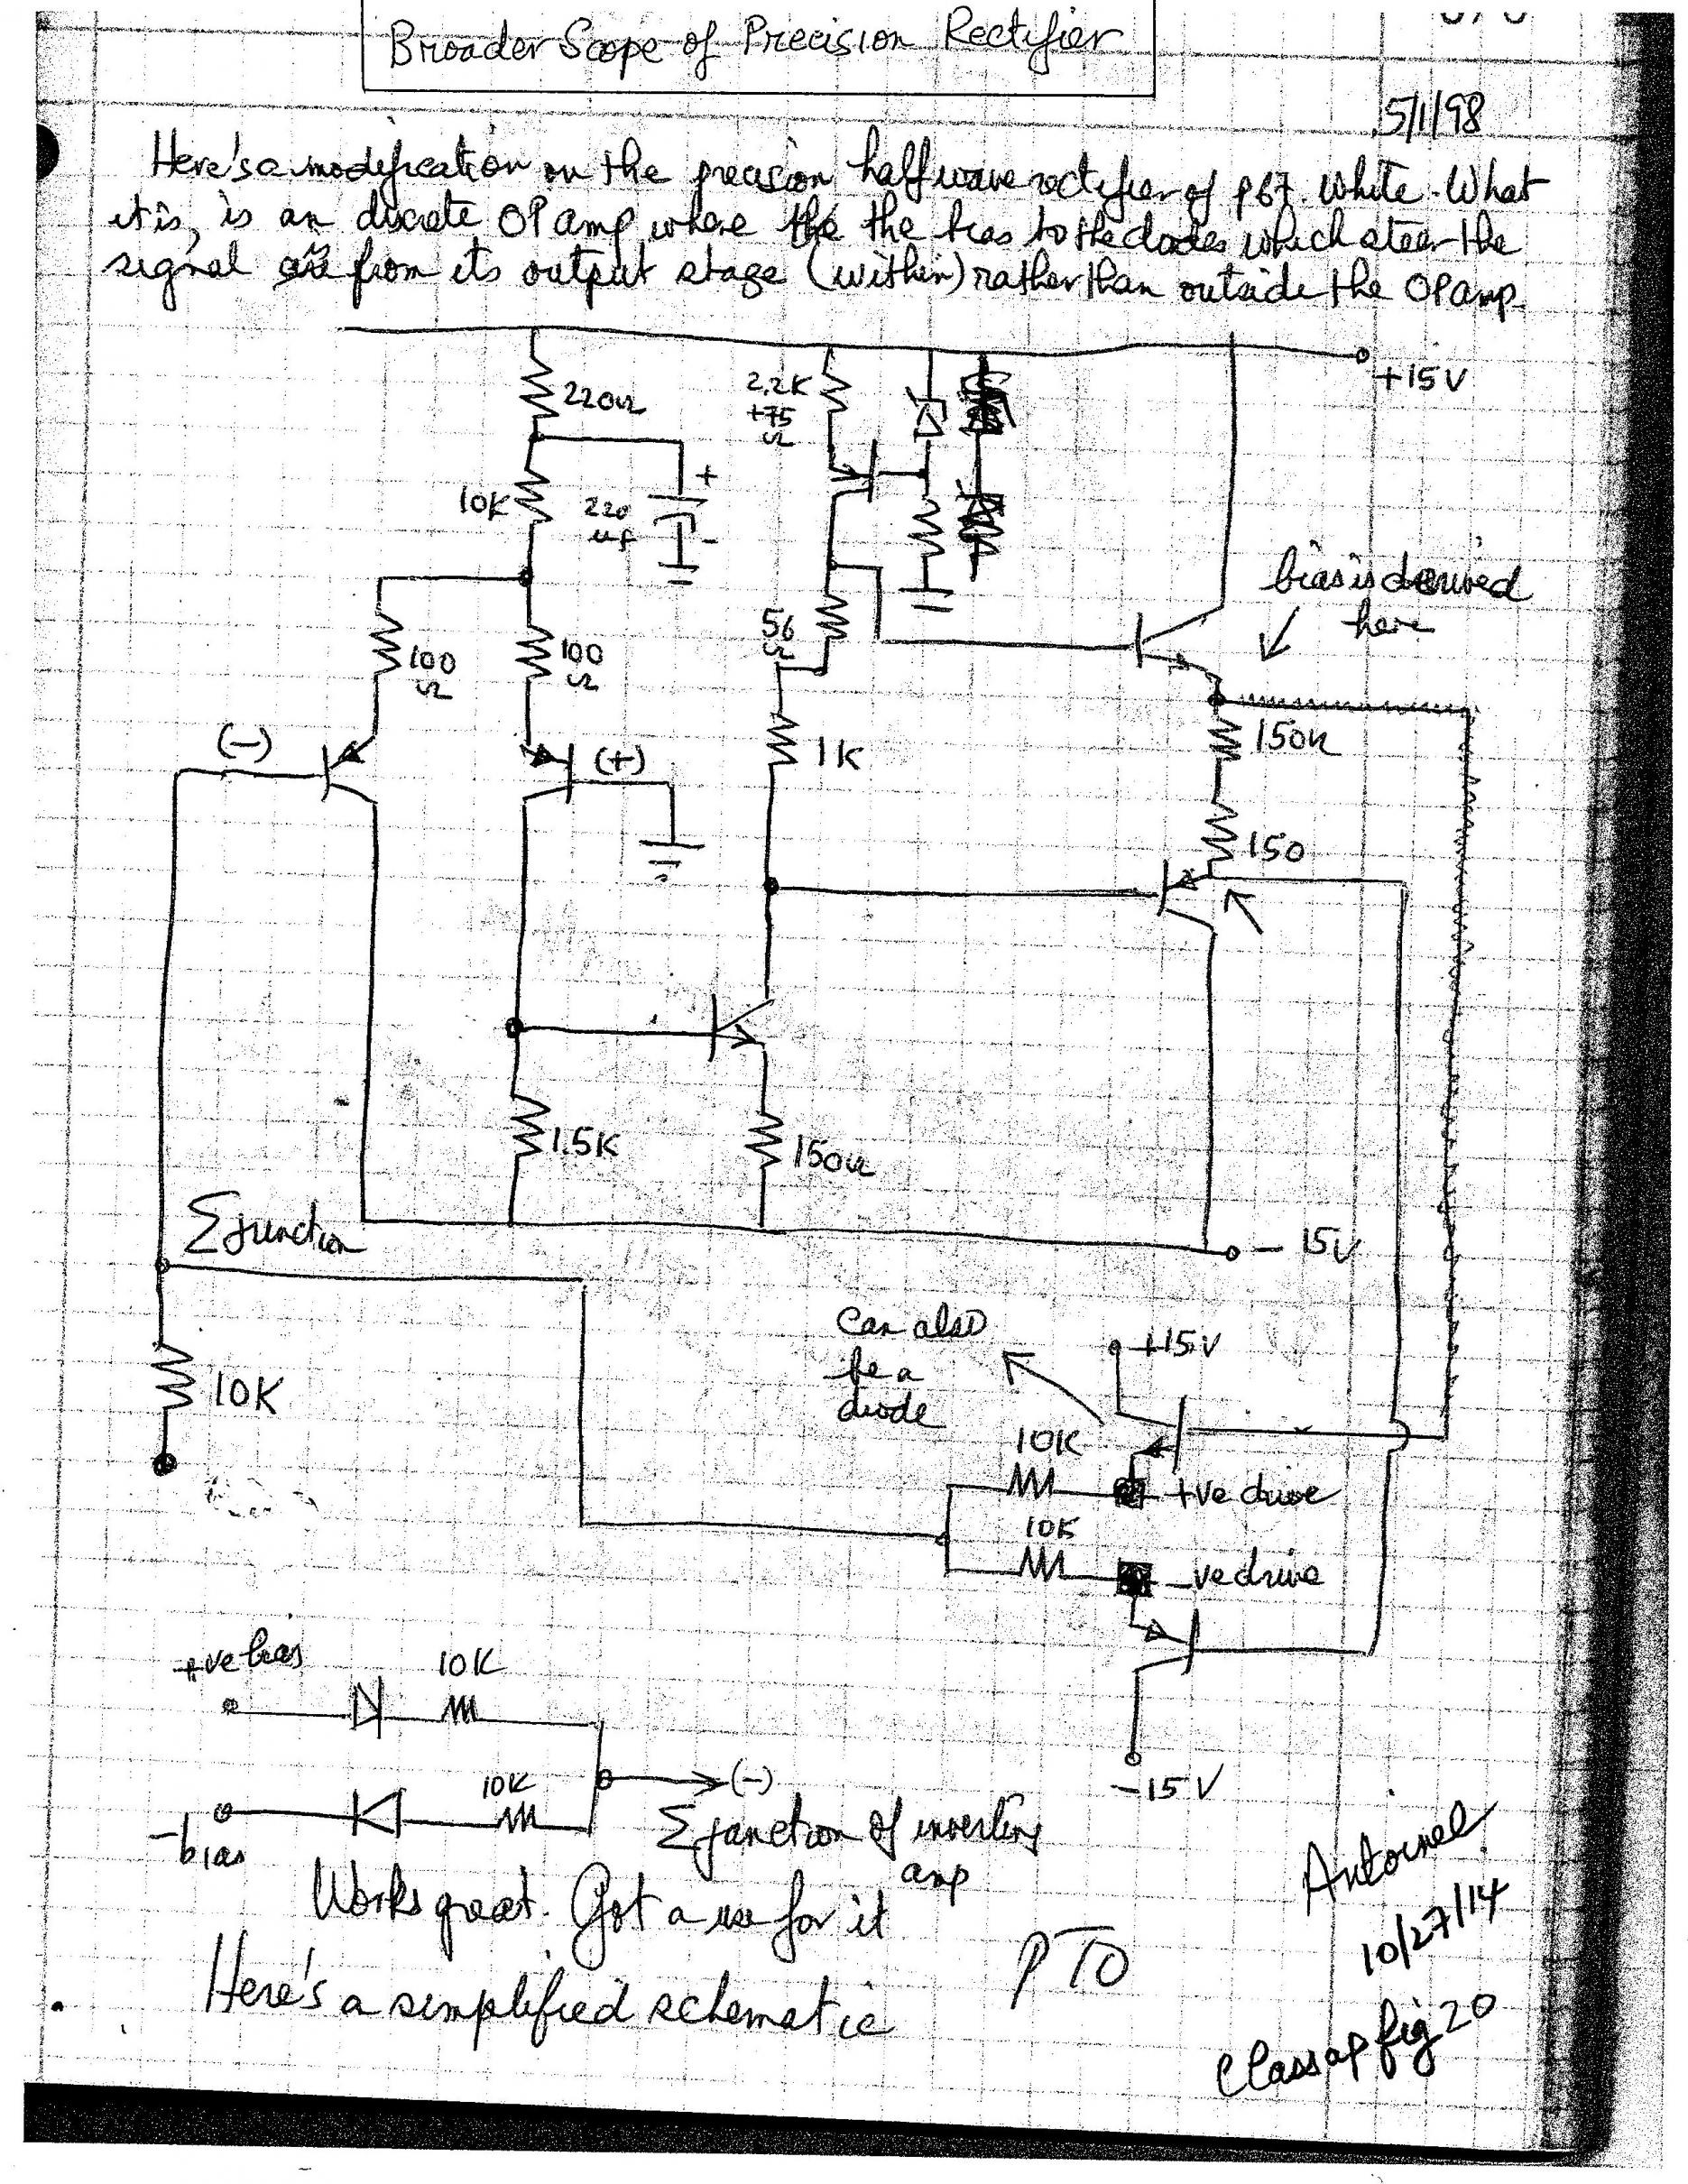 Broader Scope of Precision Rectifier
5/1/98
Here's a modification on the precision halfwave rectifier of p67 white. What
it is, is an discrete OP amp where the the bias to the diodes which steer the
signal are from its output stage (within) rather than outside the OP amp.
+15V
220Ω
2.2K
+75
Ω
10K
220
uf
+
-
bias is derived
here
56
Ω
100
Ω
100
Ω
150Ω
(-)
(+)
1K
150
1.5K
150Ω
Σ junction
- 15V
Can also
be a
diode
+15V
10K
10K
+ve drive
10K
-ve drive
+ve bias
10K
10K
(-)
-15V
-bias
Σ junction of inverting
amp
Works great. Got a use for it
Here's a simplified schematic
PTO
10/27/14
Class ap fig 20